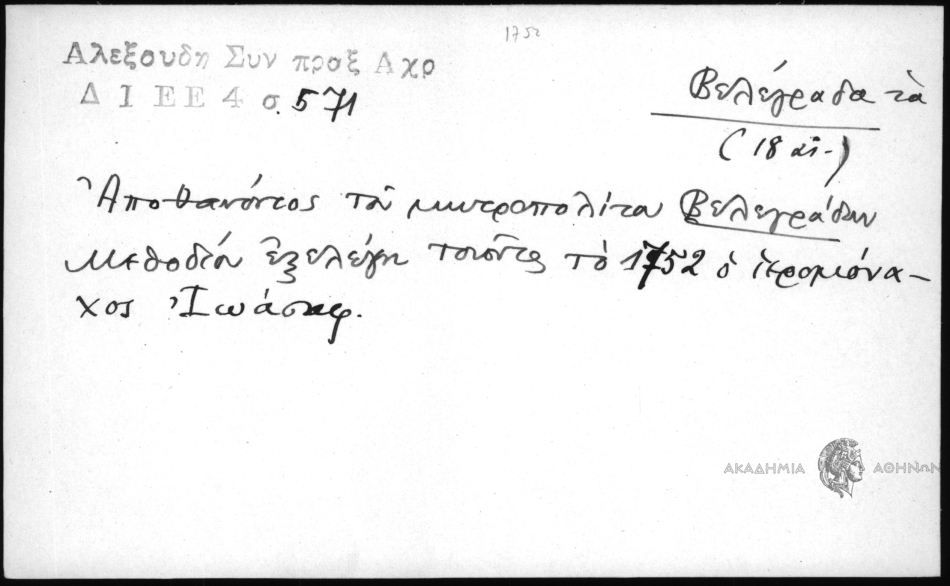 1752
Αλεξουδη Συν πραξ Αχρ
Δ Ι Ε Ε 4 σ. 571
Βελέγραδα τὰ
(18 αἰ.)
Ἀποθανόντος τοῦ μητροπολίτου Βελεγράδων
Μεθοδίου ἐξελέγη τὸ 1752 ὁ ἱερομόνα-
χος Ἰωάσαφ.
ΑΚΑΔΗΜΙΑ ΑΘΗΝΩΝ